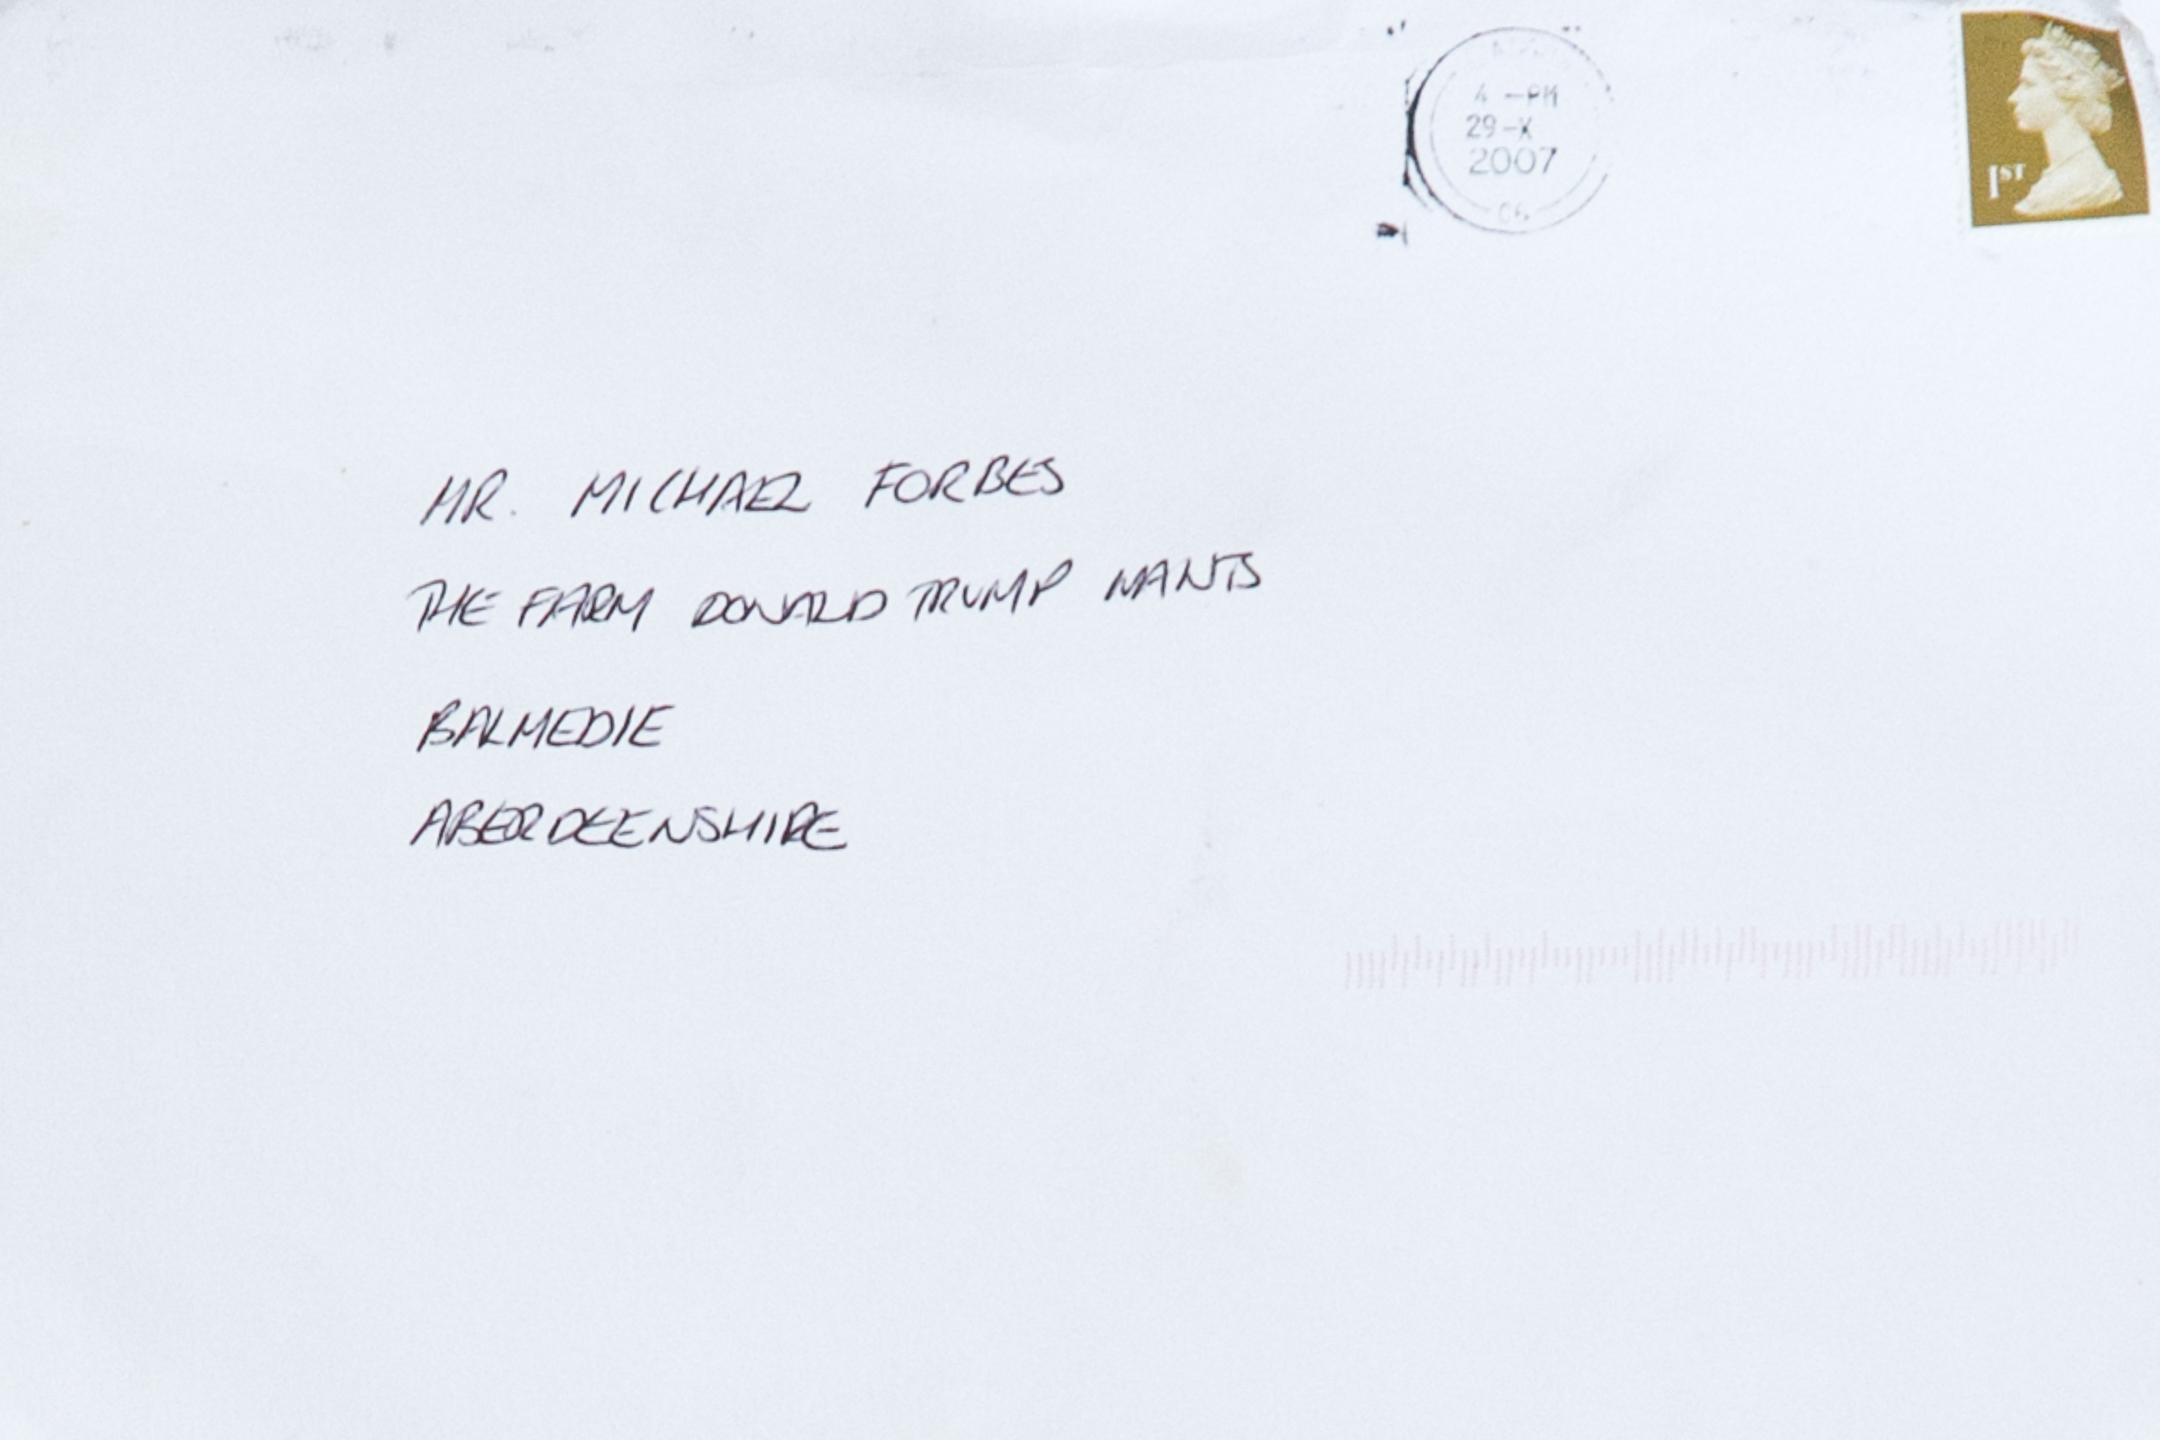 4 -PM
29-X
2007
06
1ST
MR. MICHAEL FORBES
THE FARM DONALD TRUMP WANTS
BALMEDIE
ABERDEENSHIRE